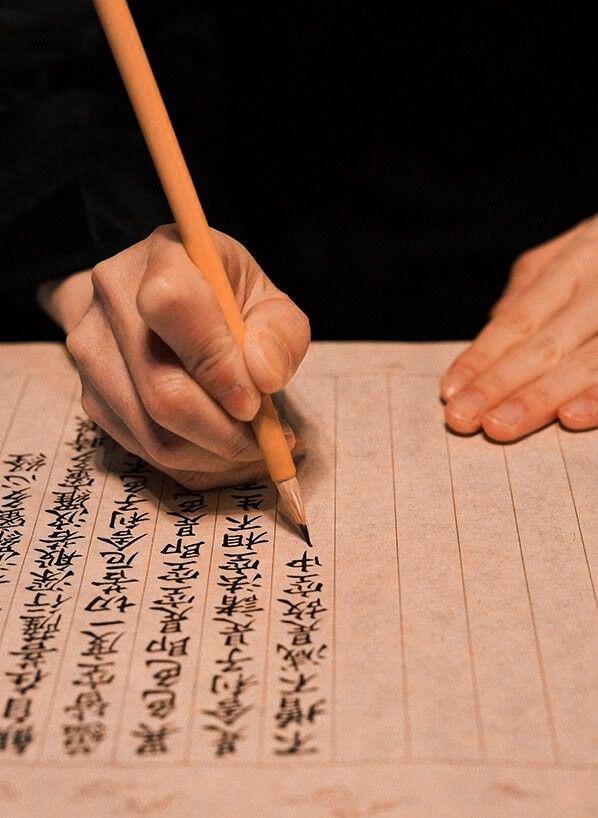 蜜多心経
觀自在菩薩行深般若波羅蜜多時
蘊皆空度一切苦厄舍利子色不
異色色即是空空即是色
是舍利子是諸法空相不生
不增不減是故空中